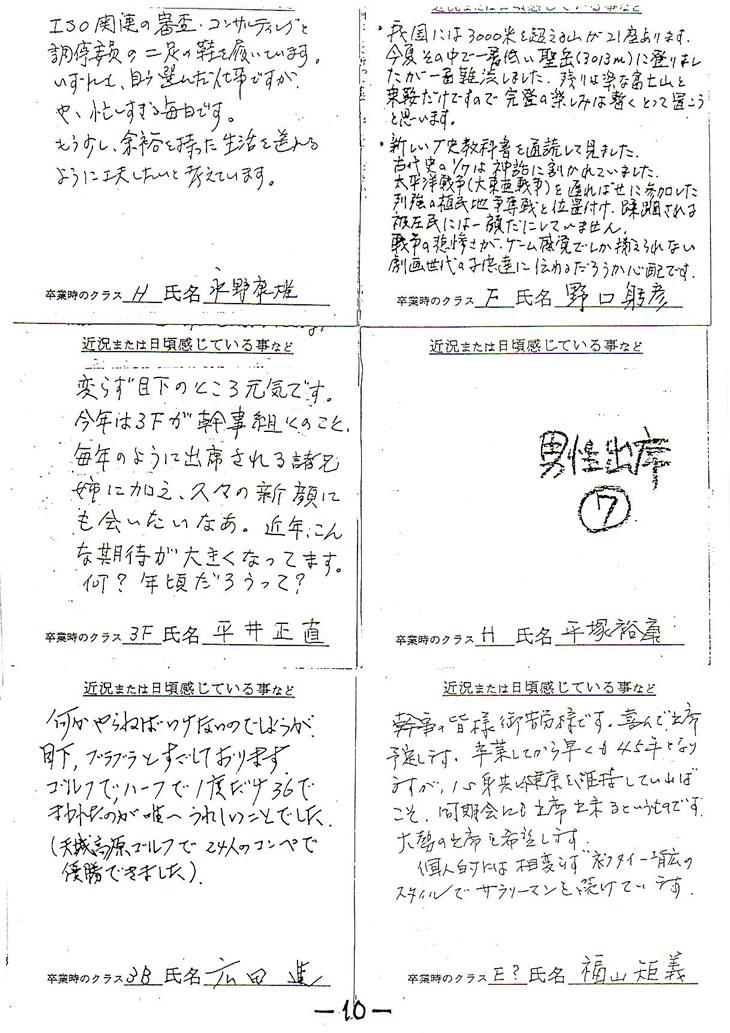 ISO関連の審査・コンサルティングと
調停委員の二足の鞋を履いています。
いずれも、自ら選んだ仕事ですが
やゝ忙しすぎる毎日です。
もう少し、余裕を持った生活を送れる
ように工夫したいと考えています。
卒業時のクラス H 氏名 永野康雄
近況または日頃感じている事など
・我国には3000米を超える山が21座あります。
今夏その中で一番低い聖岳(3013m)に登りまし
たが一番難渋しました。残りは楽な富士山と
乗鞍だけですので完登の楽しみは暫くとって置こう
と思います。
・新しい歴史教科書を通読して見ました。
古代史の1/7は神話に割かれていました。
太平洋戦争(大東亜戦争)を遅ればせに参加した
列強の植民地争奪戦と位置付け、蹂躙される
被圧民には一顧だにしていません。
戦争の悲惨さが、ゲーム感覚でしか捕えられない
劇画世代の子供達に伝わるだろうか心配です。
卒業時のクラス F 氏名 野口躬彦
近況または日頃感じている事など
変らず目下のところ元気です。
今年は3Fが幹事組とのこと、
毎年のように出席される諸兄
姉に加え、久々の新顔に
も会いたいなあ。近年、こん
な期待が大きくなってます。
何？年頃だろうって？
卒業時のクラス 3F 氏名 平井正直
近況または日頃感じている事など
男性出席
⑦
卒業時のクラス H 氏名 平塚裕康
近況または日頃感じている事など
何かやらねばいけないのでしょうが、
目下、ブラブラとすごしております
ゴルフで、ハーフで1度だけ36で
まわれたのが唯一うれしいことでした。
(天城高原ゴルフで24人のコンペで
優勝できました)。
卒業時のクラス 3B 氏名 広田進
近況または日頃感じている事など
幹事の皆様御苦労様です。喜んで出席
予定します。卒業してから早くも45年となり
ますが、心身共に健康を維持していれば
こそ、同期会にも出席出来るというものです。
大勢の出席を希望します。
個人的には相変らずネクタイ・背広の
スタイルでサラリーマンを続けています。
卒業時のクラス E? 氏名 福山矩義
－10－